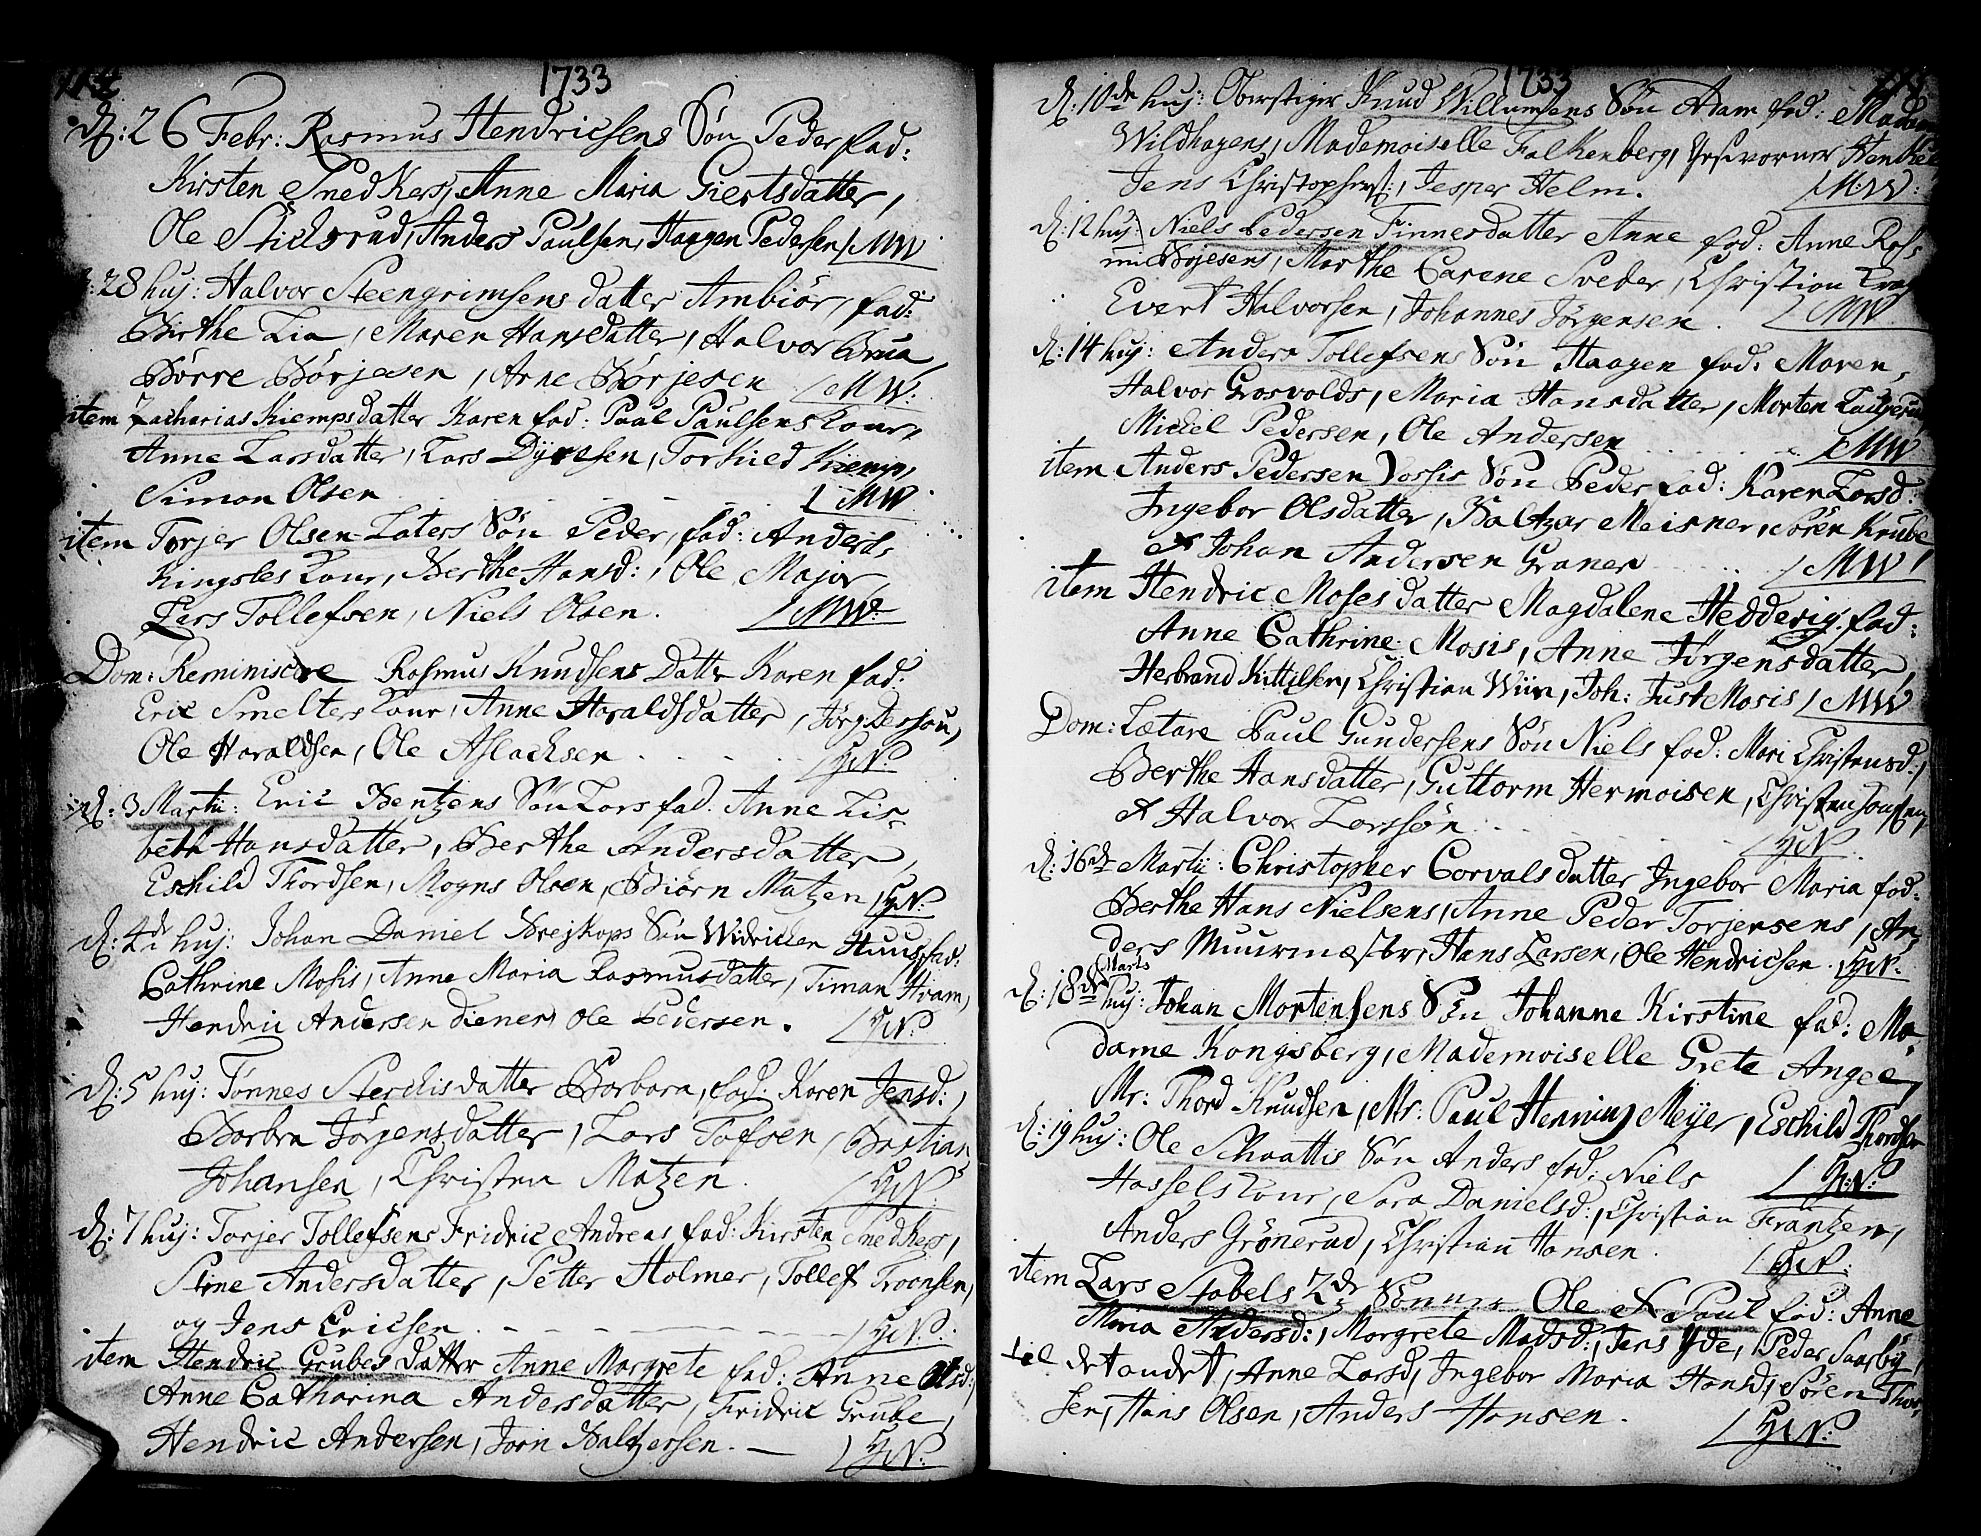 1733
D: 26 Febr: Rasmus Hendrichsens Sön Peder fad:
Kirsten Snedkers, Anne Maria Giertsdatter,
Ole Stichsrud, Anders Paulsen, Haagen Pedersen / MW
28 huj: Halvor Steengrimsens datter Ambiör, fad:
Birthe Lia, Maren Hansdatter, Halvor Brua
Börre Börjesen, Arne Börjesen / MW.
item Zacharias Kiempsdatter Karen fad: Paul Paulsens Konr,
Anne Larsdatter, Lars Dyresen, Torkild Kiemp,
Simon Olsen / MW
item Torjer Olsen Laters Sön Peder, fad: Anders
Kingsles Konr, Berthe Hansd:, Ole Major
Lars Tollefsen, Niels Olsen. / MW:
Dom: Reminiscere Rasmus Knudsens Datter Karen fad:
Eric Smelters Konr, Anne Haraldsdatter, Jörg Dessou,
Ole Haraldsen, Ole Aslachsen / GN
D: 3 Martii: Eric Bentzens Sön Lars fad: Anne Lis-
beth Hansdatter, Berthe Andersdatter,
Eschild Thordsen, Mogns Olsen, Biörn Matzen / GN:
D: 4de huj: Johan Daniel Brejkops Sön Widrichen Huus, fad:
Cathrine Mosis, Anne Maria Rasmusdatter, Timan Hvam,
Hendric Andersen diener, Ole Pedersen. / GN:
D: 5 huj: Tönnes Sterchis datter Barbara, fad: Karen Jensd:,
Barbra Jörgensdatter, Lars Tofsen, Bastian
Johansen, Christen Matzen. / GN
D: 7 huj: Torjer Tollefsens Fridric Andreas fad: Kirsten Snedkers,
Stine Andersdatter, Petter Holmer, Tollef Troensen,
og Jens Ericsen / GN:
item Hendric Grubes datter Anne Margrete fad: Anne Olsd:,
Anne Catharina Andersdatter, Fridric Grube,
Hendric Andersen, Jörn Baltzersen. / GN:
1733
D: 10de huj: Oberstiger Knud Willumsens Sön Adam fad: Madam
Wildhagens, Mademoiselle Falkenberg, Gesvorner Henkel
Jens Christophers:, Jesper Helm. / MW:
D: 12 huj: Niels Pedersen Finnes datter Anne fad: Anne Ras-
mi Böjesens, Marthe Carene Sveder, Christian Krag
Evert Halvorsen, Johannes Jörgensen. / MW
D: 14 huj: Anders Tollefsens Sön Haagen fad: Maren
Halvor Grosvolds, Maria Hansdatter, Morten
Mickel Pedersen, Ole Andersen / MW
item Anders Pedersen Vossis Sön Peder fad: Karen Larsd:
Ingebor Olsdatter, Baltzar Meisner, Sören Krube
& Johan Andersen Granen / MW
item Hendric Moses datter Magdalene Hedderig fad:
Anne Cathrine Mosis, Anne Jörgensdatter,
Herbrand Kittilsen, Christian Wiin, Joh: Just Mosis / MW
Dom: Lætare Paul Gundersens Sön Niels fad: Mari Christensd:,
Berthe Hansdatter, Guttorm Hermoisen, Christen Jonsen,
& Halvor Larssön / GN
D: 16de Martii: Christopher Corvals datter Ingebor Maria fad:
Berthe Hans Nielsens, Anne Peder Torjersens, An-
ders Muurmester, Hans Larsen, Ole Hendricsen. / GN:
D: 18de Marts huj: Johan Mortensens Sön Johanne Kirstine fad: Ma-
dame Kongsberg, Mademoiselle Grete Angel,
Mr: Thord Knudsen, Mr: Paul Henning Meyer, Eschild Thordsen
/ GN:
D: 19 huj: Ole Schaattis Sön Anders fad: Niels
Hassels Konr, Sara Danielsd:, Christian Frantzen,
Anders Grönerud, Christian Hansen. / GN:
item Lars Stabels 2de Sönner Ole & Paul fad: Anne
Maria Andersd:, Margrete Madsd:, Jens Yde, Peder Saarby,
til det andet, Anne Larsd, Ingebor Maria Hansd, Sören Thor-
sen, Hans Olsen, Anders Hansen. / GN: